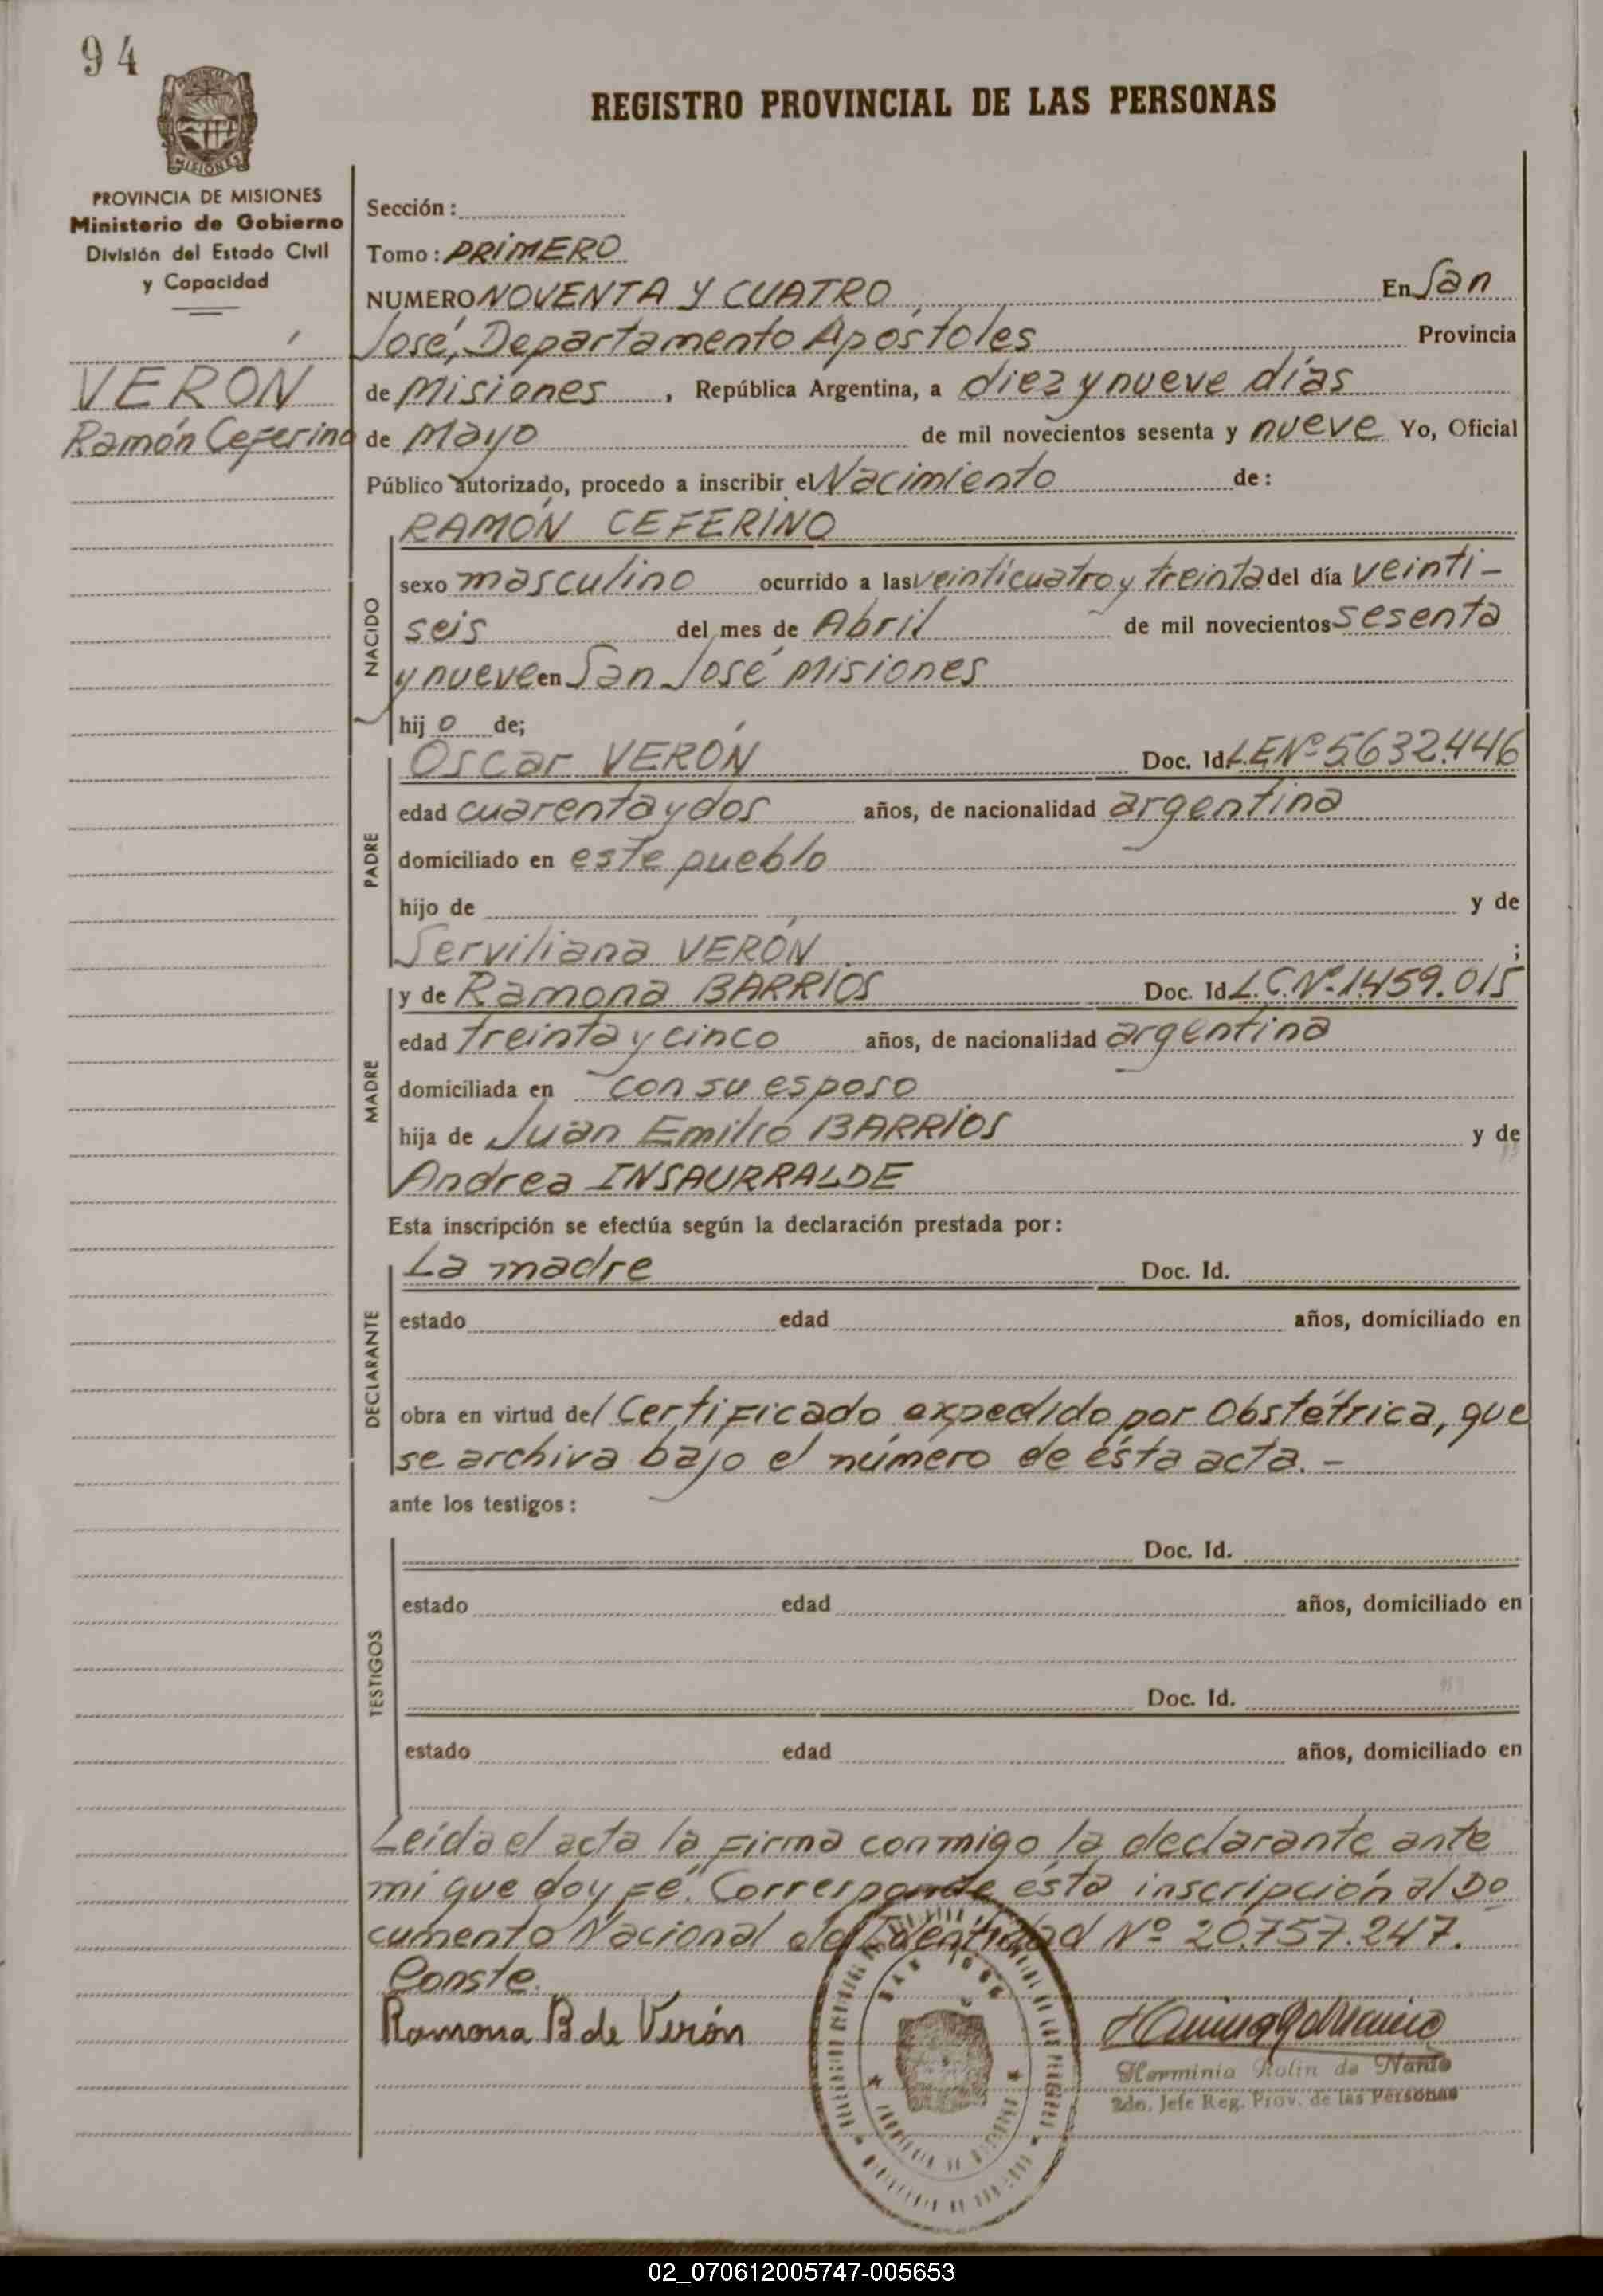 94
MISIONES
REGISTRO PROVINCIAL DE LAS PERSONAS
PROVINCIA DE MISIONES
Ministerio de Gobierno
División del Estado Civil
y Capacidad
VERÓN
Ramón Ceferino
Sección:
Tomo: PRIMERO
NUMERO NOVENTA Y CUATRO, En San
José, Departamento Apóstoles Provincia
de Misiones, República Argentina, a diez y nueve días
de Mayo de mil novecientos sesenta y nueve Yo, Oficial
Público autorizado, procedo a inscribir el Nacimiento de:
RAMÓN CEFERINO
NACIDO
sexo masculino ocurrido a las veinticuatro y treinta del día veinti-
seis del mes de Abril de mil novecientos sesenta
y nueve en San José Misiones
hijo de;
PADRE
Oscar VERÓN Doc. Id. L.E.Nº 5.632.446
edad cuarenta y dos años, de nacionalidad argentina
domiciliado en este pueblo
hijo de y de
Serviliana VERÓN ;
MADRE
y de Ramona BARRIOS Doc. Id. L.C.Nº 1.459.015
edad treinta y cinco años, de nacionalidad argentina
domiciliada en con su esposo
hija de Juan Emilio BARRIOS y de
Andrea INSAURRALDE
Esta inscripción se efectúa según la declaración prestada por:
DECLARANTE
La madre Doc. Id.
estado edad años, domiciliado en
obra en virtud del Certificado expedido por Obstétrica, que
se archiva bajo el número de ésta acta.-
ante los testigos:
TESTIGOS
Doc. Id.
estado edad años, domiciliado en
Doc. Id.
estado edad años, domiciliado en
Leída el acta la firma conmigo la declarante ante
mi que doy fé. Corresponde ésta inscripción al Do
cumento Nacional de Identidad Nº 20.757.247.
Conste.
Ramona B de Verón
SAN JOSE
Herminia Rolin de Nario
2do. Jefe Reg. Prov. de las Personas
02_070612005747-005653